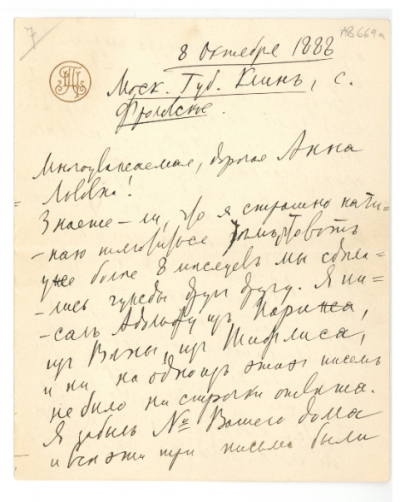 7
AB 669a
8 Октября 1888
Моск. Губ. Клинъ, с.
Фроловское.
Многоуважаемая, дорогая Анна
Львовна!
Знаете-ли, что я страшно начи-
-наю
уже более 8 месяцевъ мы сдела-
-лись чужды другъ другу. Я пи-
-салъ Адольфу изъ Парижа,
изъ Вены, изъ Тифлиса,
и ни на одно изъ этихъ писемъ
не было ни строчки ответа.
Я забылъ № Вашего дома
и все эти три письма были